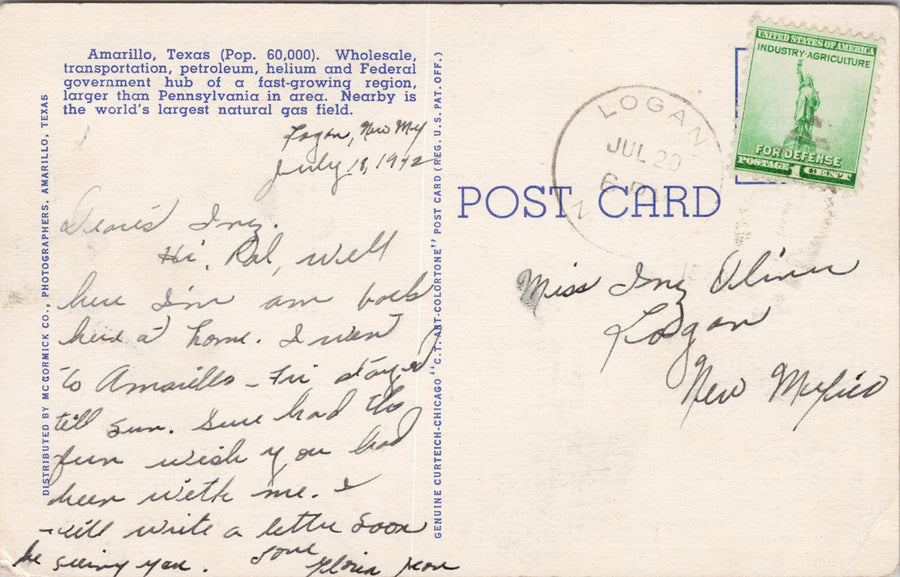 Amarillo, Texas (Pop. 60,000). Wholesale,
transportation, petroleum, helium and Federal
government hub of a fast-growing region,
larger than Pennsylvania in area. Nearby is
the world's largest natural gas field.
Logan, New Mex
July 18, 1942
Inez.
Hi, Pal, well
here I'm am back
here at home. I went
to Amarillo - Fri stayed
till Sun. Sure had the
fun wish you had
been with me. I
will write a letter soon
be seeing you. Love
Gloria Jean
DISTRIBUTED BY MC CORMICK CO., PHOTOGRAPHERS, AMARILLO, TEXAS
GENUINE CURTEICH-CHICAGO "C.T. ART-COLORTONE" POST CARD (REG. U.S. PAT. OFF.)
POST CARD
LOGAN
JUL 20
6 P
N
UNITED STATES OF AMERICA
INDUSTRY·AGRICULTURE
FOR DEFENSE
POSTAGE 1 CENT
Miss Inez
Logan
New Mexico